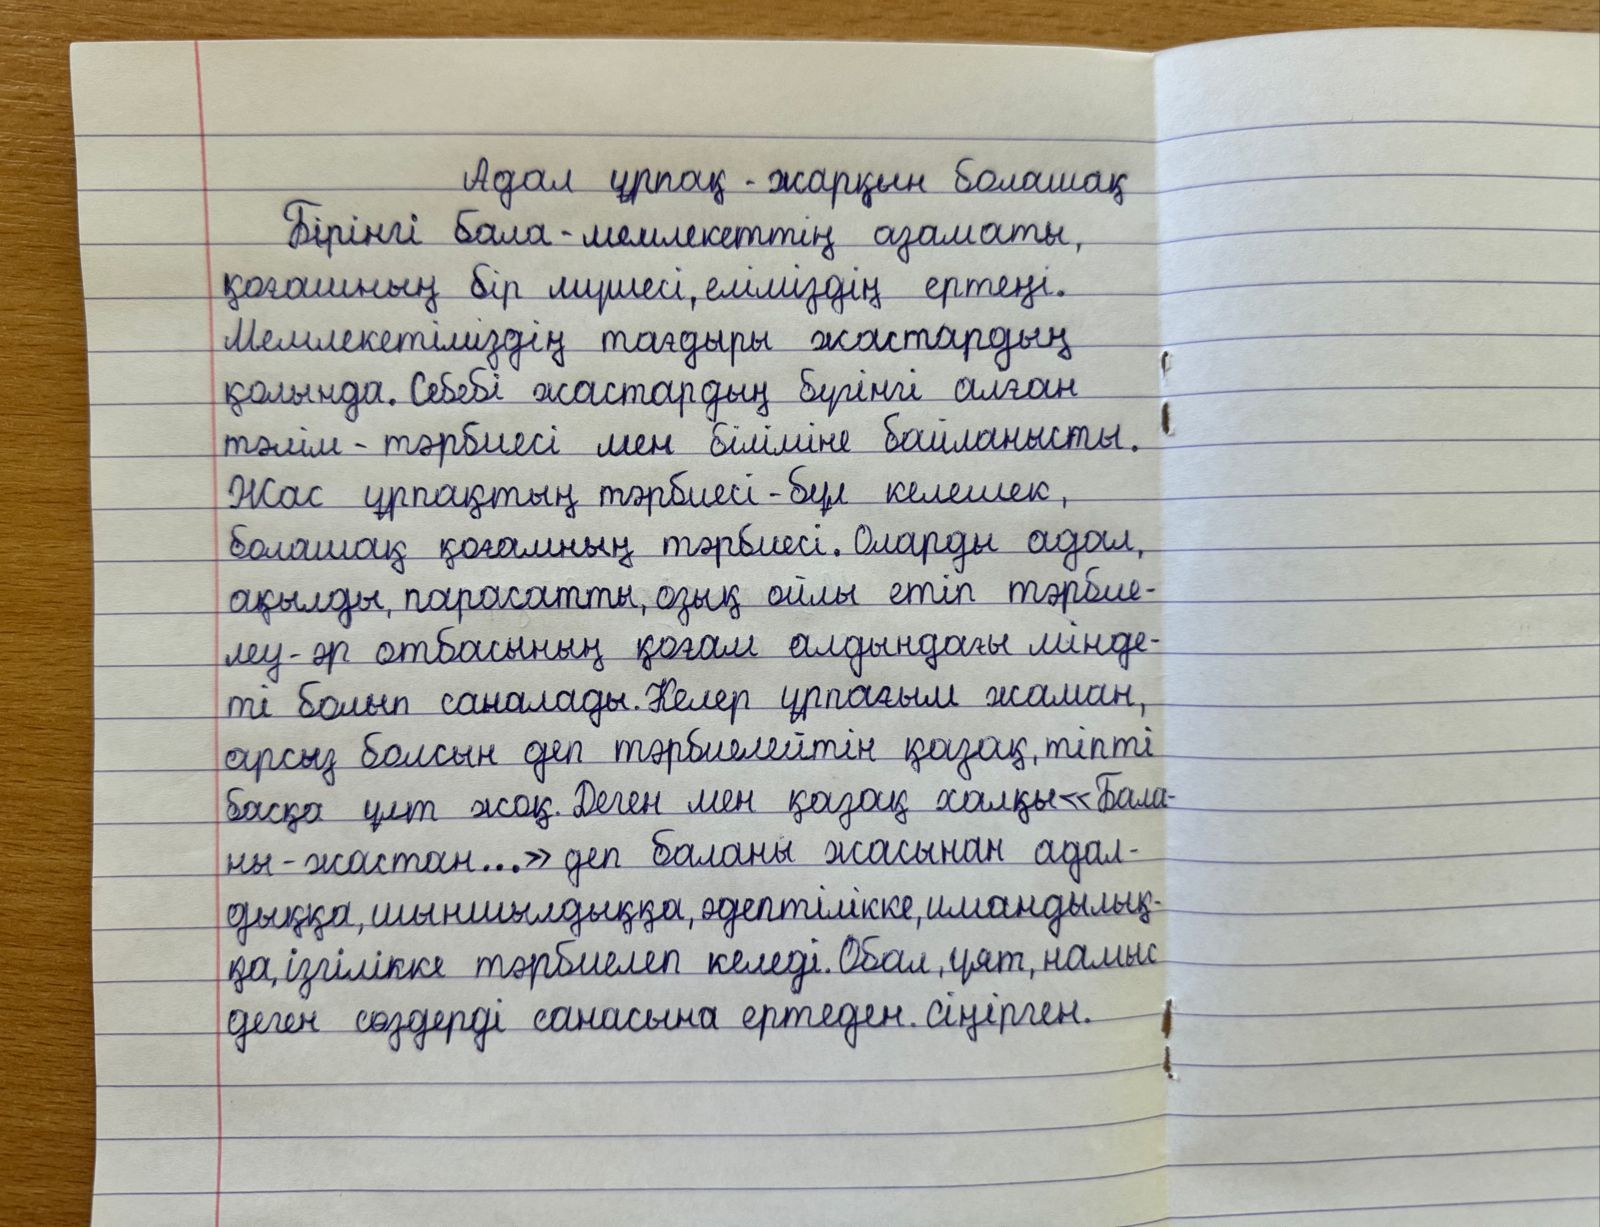 Адал ұрпақ - жарқын болашақ
Бірінгі бала - мемлекеттің азаматы,
қоғамның бір мүшесі, еліміздің ертеңі.
Мемлекетіміздің тағдыры жастардың
қолында. Себебі жастардың бүгінгі алған
тәлім - тәрбиесі мен біліміне байланысты.
Жас ұрпақтың тәрбиесі - бұл келешек,
болашақ қоғамның тәрбиесі. Оларды адал,
ақылды, парасатты, озық ойлы етіп тәрбие-
леу - әр отбасының қоғам алдындағы мінде-
ті болып саналады. Келер ұрпағым жаман,
арсыз болсын деп тәрбиелейтін қазақ, тіпті
басқа ұлт жоқ. Деген мен қазақ халқы «Бала-
ны - жастан...» деп баланы жасынан адал-
дыққа, шыншылдыққа, әдептілікке, имандылық-
қа, ізгілікке тәрбиелеп келеді. Обал, ұят, намыс
деген сөздерді санасына ертеден сіңірген.